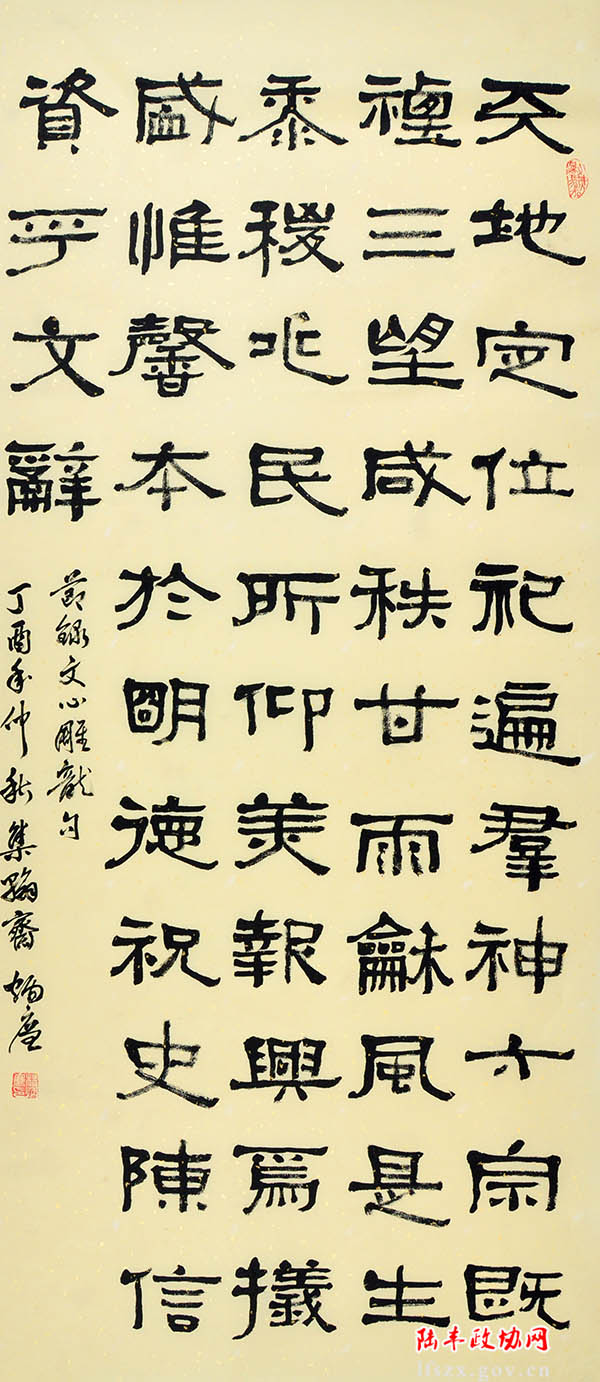 天地定位祀遍羣神六宗既
禋三望咸秩甘雨龢風是生
黍稷兆民所仰美報興焉犧
盛惟馨本於明德祝史陳信
資乎文辭
節錄文心雕龍句
丁酉年仲秋集翰齋
陆丰政协网
lfszx.gov.cn